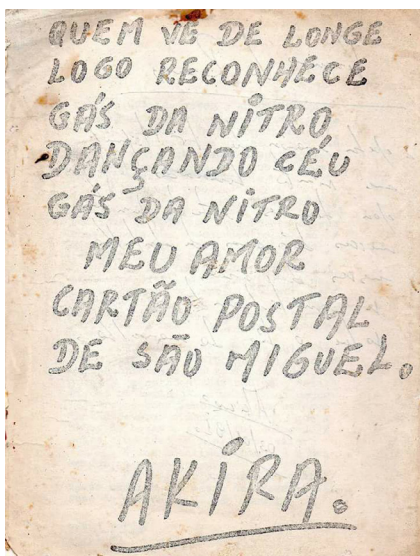 QUEM VE DE LONGE
LOGO RECONHECE
GÁS DA NITRO
DANÇANDO CÉU
GÁS DA NITRO
MEU AMOR
CARTÃO POSTAL
DE SÃO MIGUEL.
AKIRA.